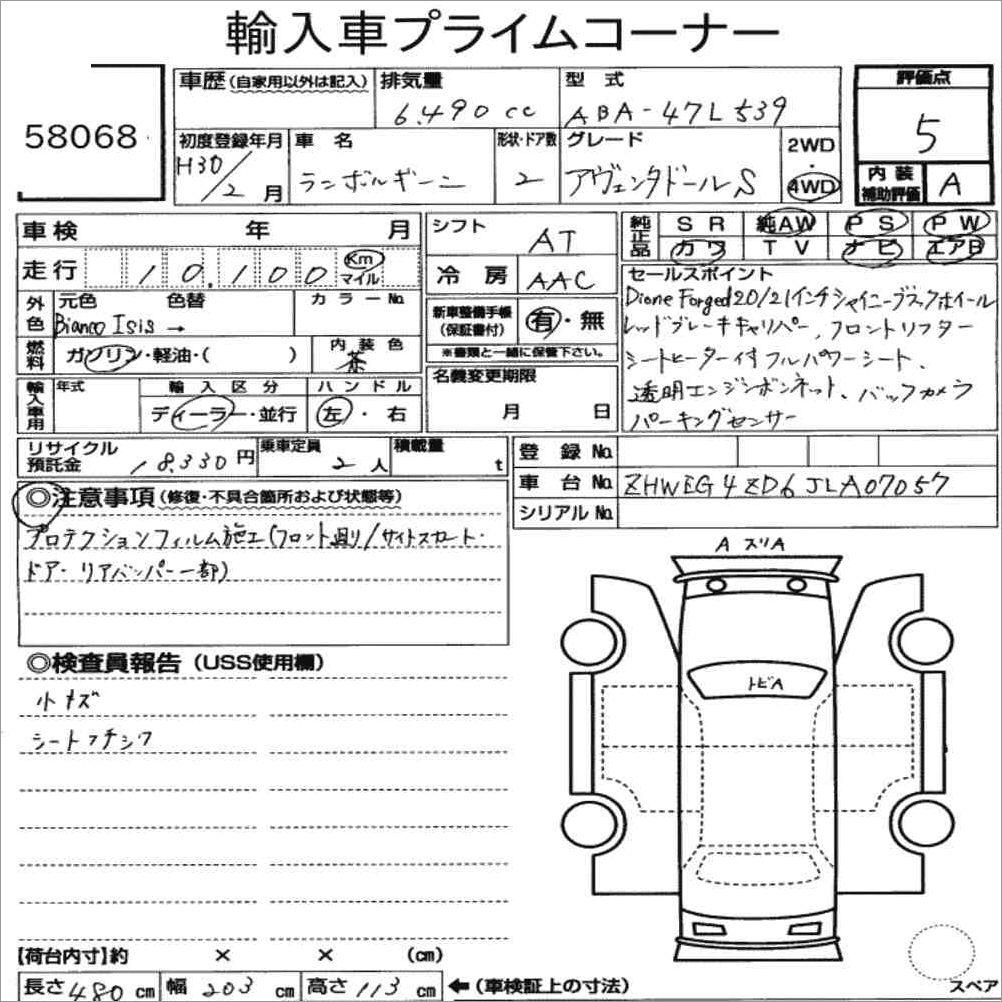 輸入車プライムコーナー
58068
車歴(自家用以外は記入) 排気量 型式
6.490cc ABA-47L539
初度登録年月 車名 形状・ドア数 グレード 2WD・4WD
H30/2月 ランボルギーニ 2 アヴェンタドールS
評価点
5
内装補助評価 A
車検 年 月
走行 10,100 Km マイル
外色 元色 色替 カラーNo.
Bianco Isis →
燃料 ガソリン・軽油・( ) 内装色 茶
輸入車用 年式 輸入区分 ハンドル
ディーラー・並行 左・右
シフト AT
冷房 AAC
新車整備手帳(保証書付) 有・無
※書類と一緒に保管下さい。
名義変更期限
月 日
純正品 SR 純AW PS PW
カワ TV ナビ エアB
セールスポイント
Dione Forged 20/21インチシャイニーブラックホイール
レッドブレーキキャリパー、フロントリフター
シートヒーター付フルパワーシート、
透明エンジンボンネット、バックカメラ
パーキングセンサー
リサイクル預託金 18,330円 乗車定員 2人 積載量 t
登録No.
車台No. ZHWEG4ZD6JLA07057
シリアルNo.
◎注意事項(修復・不具合箇所および状態等)
プロテクションフィルム施工(フロント廻り/サイドスカート・
ドア・リアバンパー一部)
◎検査員報告(USS使用欄)
小キズ
シートフチシワ
A スリA
トビA
【荷台内寸】約 × × (cm)
長さ480cm 幅203cm 高さ113cm ←(車検証上の寸法)
スペア